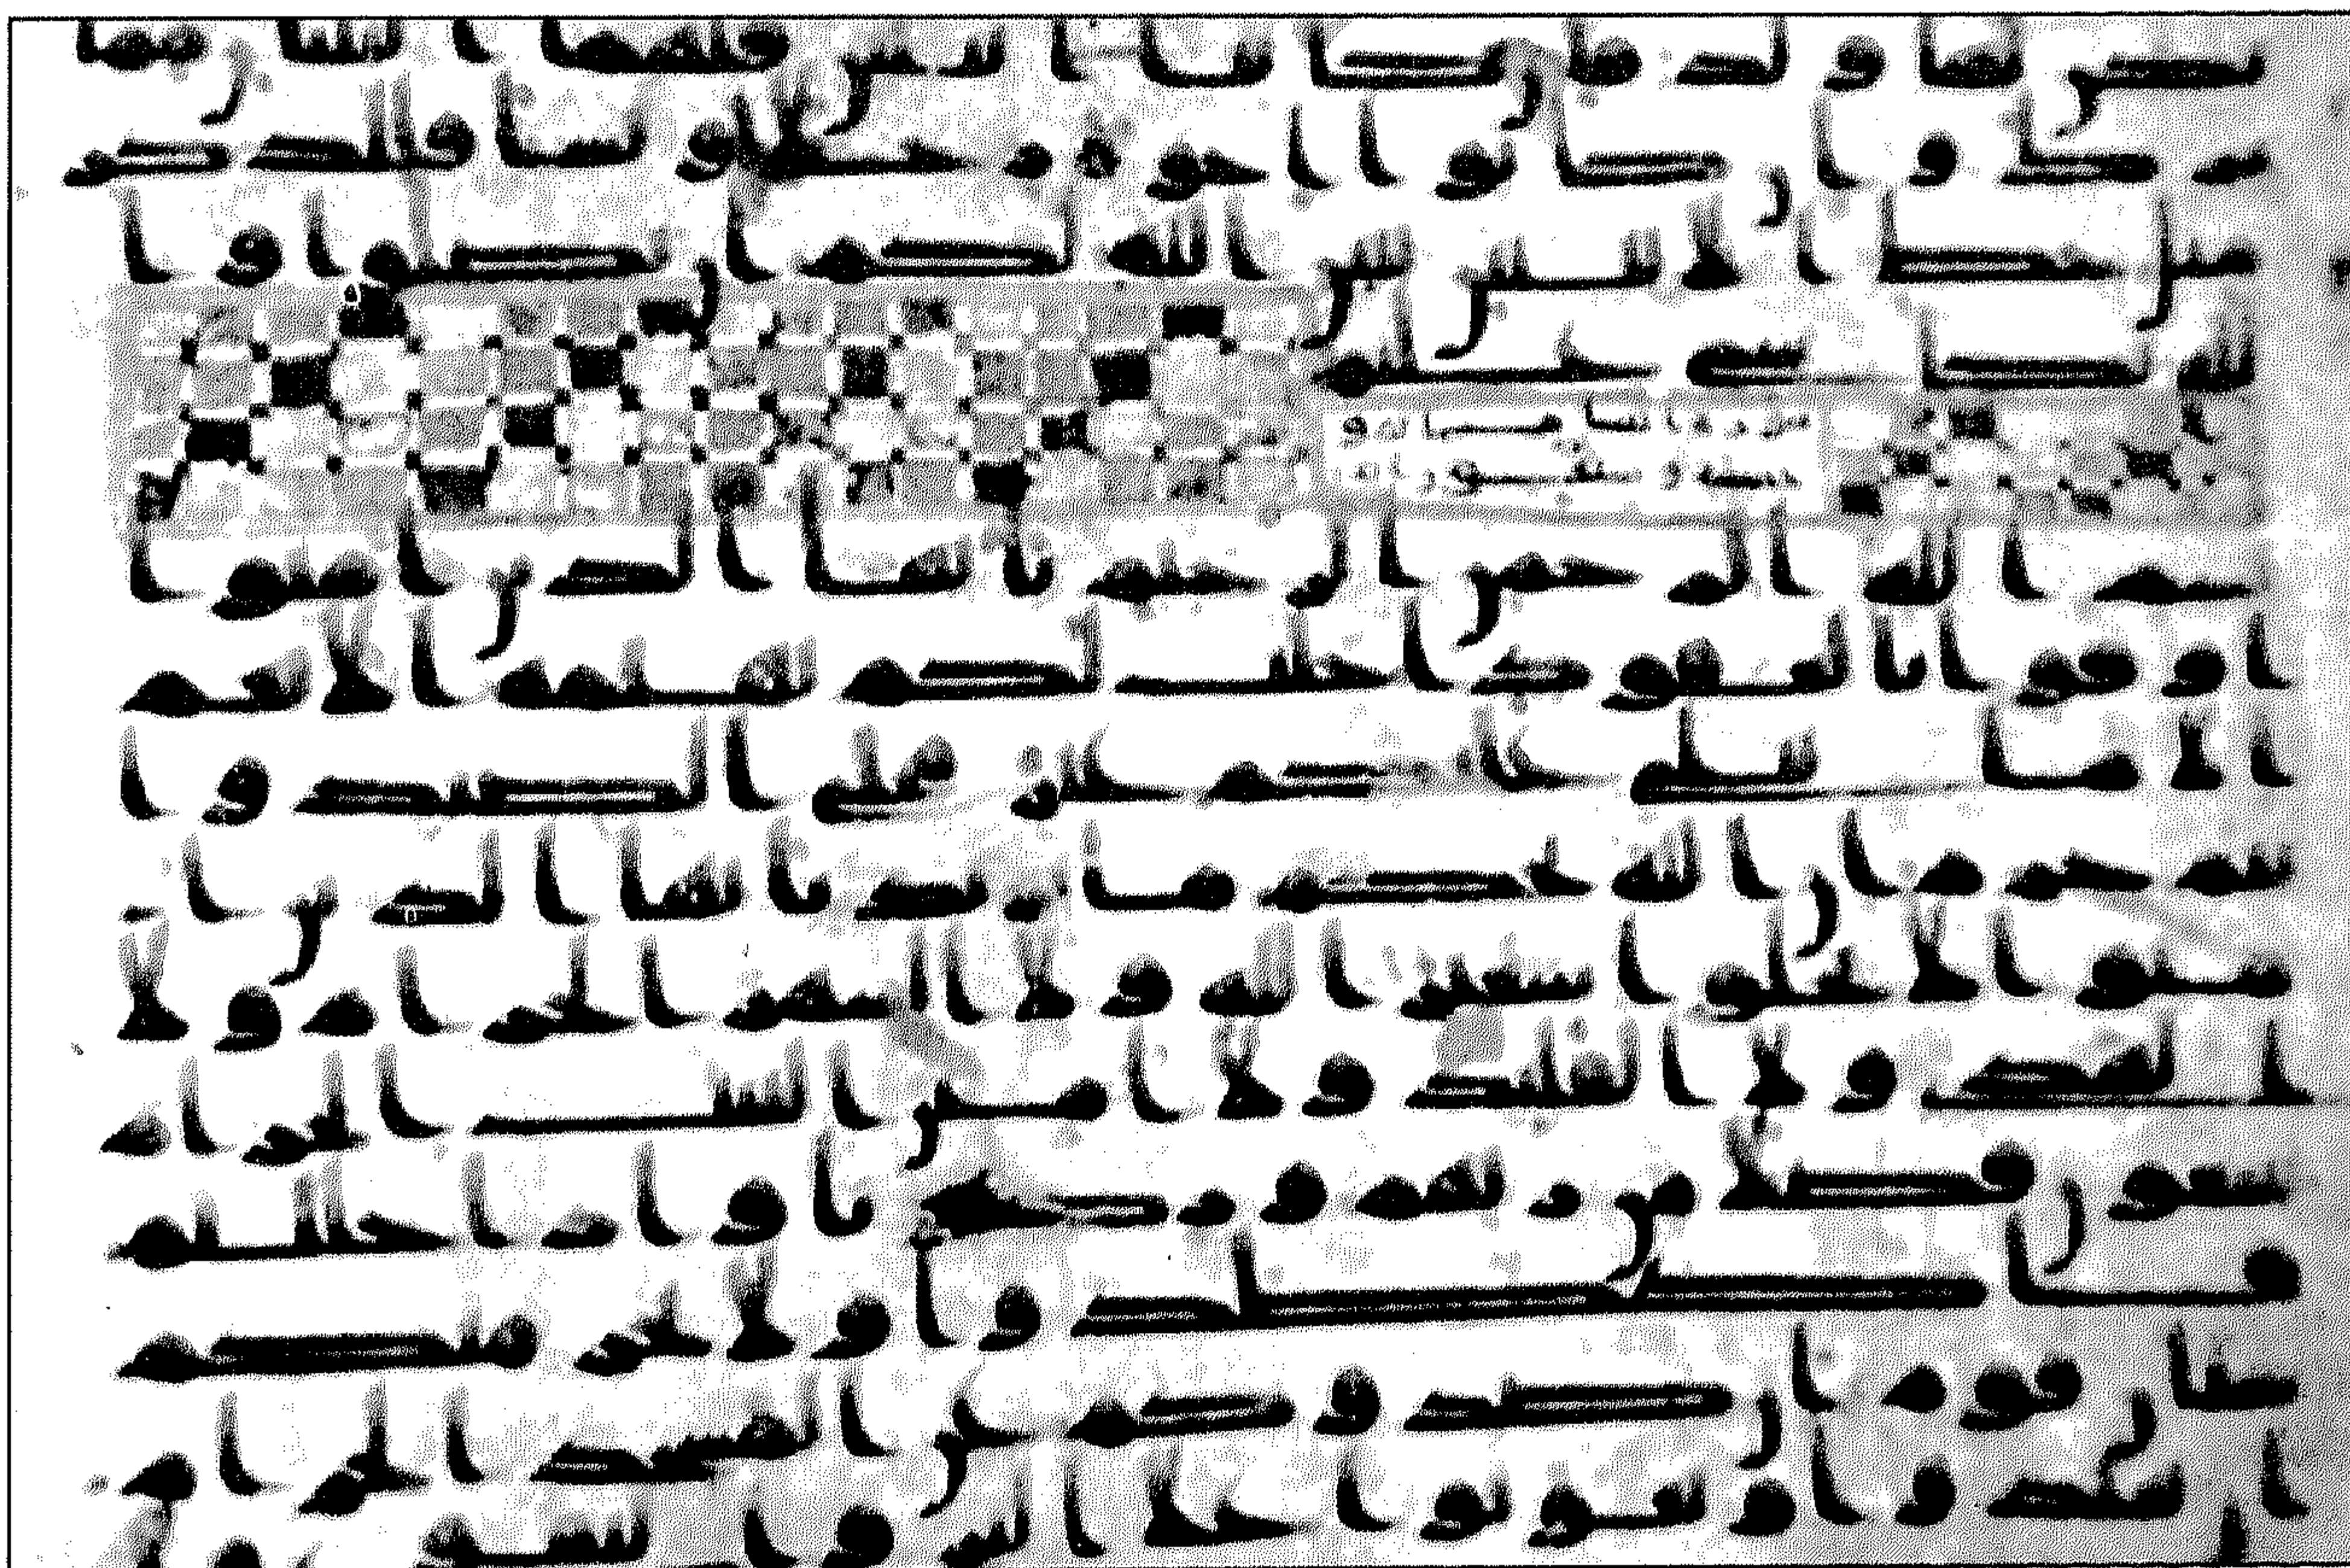 يكن لها ولد فان كانتا اثنتين فلهما الثلثن مما
ترك وان كانوا اخوة رجلا ونسا فللذكر
مثل حظ الانثيين يبين الله لكم ان تضلوا وا
لله بكل شي عليم
بسم الله الرحمن الرحيم يايها الذين امنوا
اوفوا بالعقود احلت لكم بهيمة الانعم
الا ما يتلى عليكم غير محلي الصيد وا
نتم حرم ان الله يحكم ما يريد يايها الذين ا
منوا لا تحلوا شعئر الله ولا الشهر الحرام ولا
الهدي ولا القلئد ولا امين البيت الحرام
يبتغون فضلا من ربهم ورضونا واذا حللتم
فاصطدوا ولا يجرمنكم
شنان قوم ان صدوكم عن المسجد الحرام
ان تعتدوا وتعاونوا على البر والتقوى